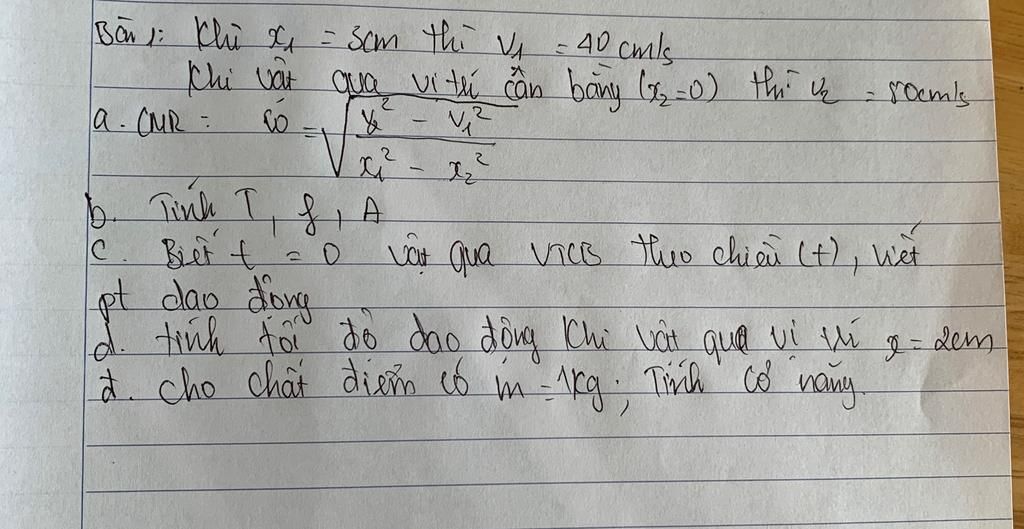 Bài 1: Khi x₁ = 3cm thì v₁ = 40 cm/s
Khi vật qua vị trí cân bằng (x₂=0) thì v₂ = 80cm/s
a. CMR: ω = √((v₂² - v₁²)/(x₁² - x₂²))
b. Tính T, f, A
c. Biết t = 0 vật qua VTCB theo chiều (+), viết
pt dao động
d. tính tốc độ dao động khi vật qua vị trí x = 2cm
đ. cho chất điểm có m = 1kg; Tính cơ năng.